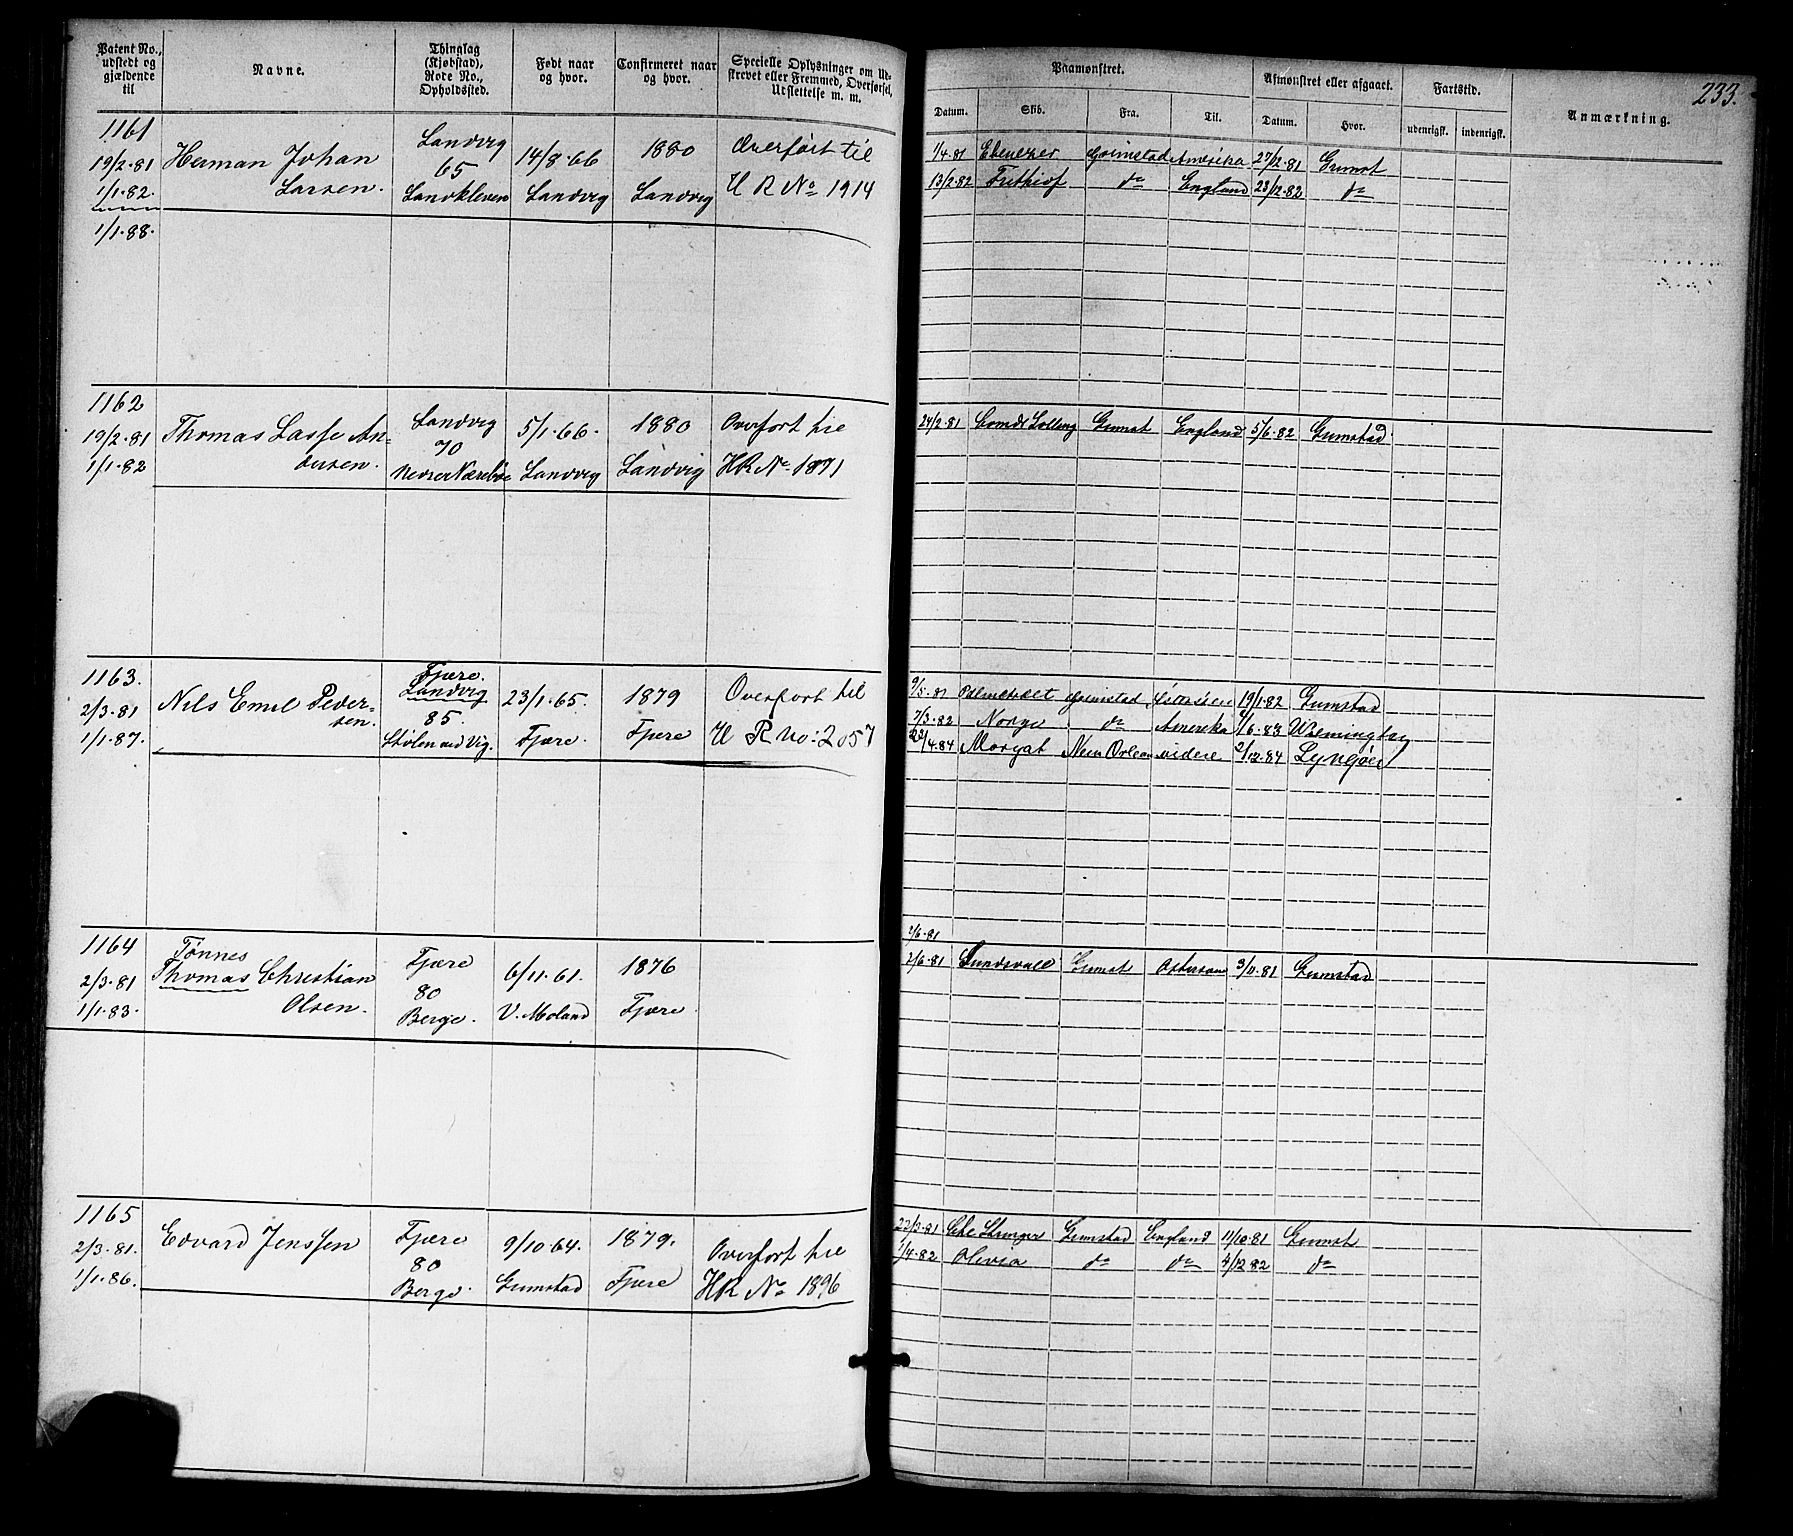 Patent No., udstedt og gjældende til
Navne.
Thinglag (Kjøbstad), Rode No., Opholdssted.
Født naar og hvor.
Confirmeret naar og hvor.
Specielle Oplysninger om Udskrevet eller Fremmed, Overførsel, Udslettelse m. m.
Paamønstret.
Datum.
Skib.
Fra.
Til.
Afmønstret eller afgaaet.
Datum.
Hvor.
Fartstid.
udenrigsk.
indenrigsk.
Anmærkning.
233.
1161
19/2-81
1/1-82.
1/1-88.
Herman Johan
Larsen.
Landvig
65
Landkleven
14/8-66
Landvig
1880
Landvig
Overført til
H R No 1914
1/4-81 Ebenezer Grimstad Amerika 27/12-81 Grimst
13/2-82 Frithiof do England 23/12-82 do
1162
19/2-81
1/1-82
Thomas Lasse An-
dersen.
Landvig
70
Nedre Nærebøe
5/1-66.
Landvig
1880
Landvig
Overført til
HR No 1871
24/2-81 Grimst England 5/6-82 Grimstad
1163.
2/3-81
1/1-87.
Nils Emil Peder-
sen.
Fjære.
Landvig
85.
Stølen ved Vig.
23/1-65.
Fjære.
1879
Fjære
Overført til
H R No: 2057
9/5-81 Grimstad 19/1-82 Grimstad
7/3-82 Norge do Amerika /6-83
/4-84 New Orlean videre 2/12-84 Lyngør
1164
2/3-81
1/1-83.
Tønnes
Thomas Christian
Olsen.
Fjære
80
Berge.
6/11-61.
V. Moland
1876
Fjære
2/6-81
2/6-81 Sundsvall Grimst 3/11-81 Grimstad
1165
2/3-81.
1/1-86.
Edvard Jenssen
Fjære
80
Berge.
9/10-64.
Grimstad
1879.
Fjære
Overført til
HR No 1896
23/3-81 Grimstad England 11/10-81 Grimst
1/4-82 Olivia do do 4/12 82 do